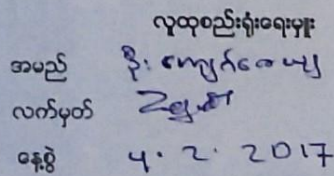 လူထုစည်းရုံးရေးမှူး
အမည် ဦး ကျော်ဇေယျ
လက်မှတ်
နေ့စွဲ ၄. 2. 2017